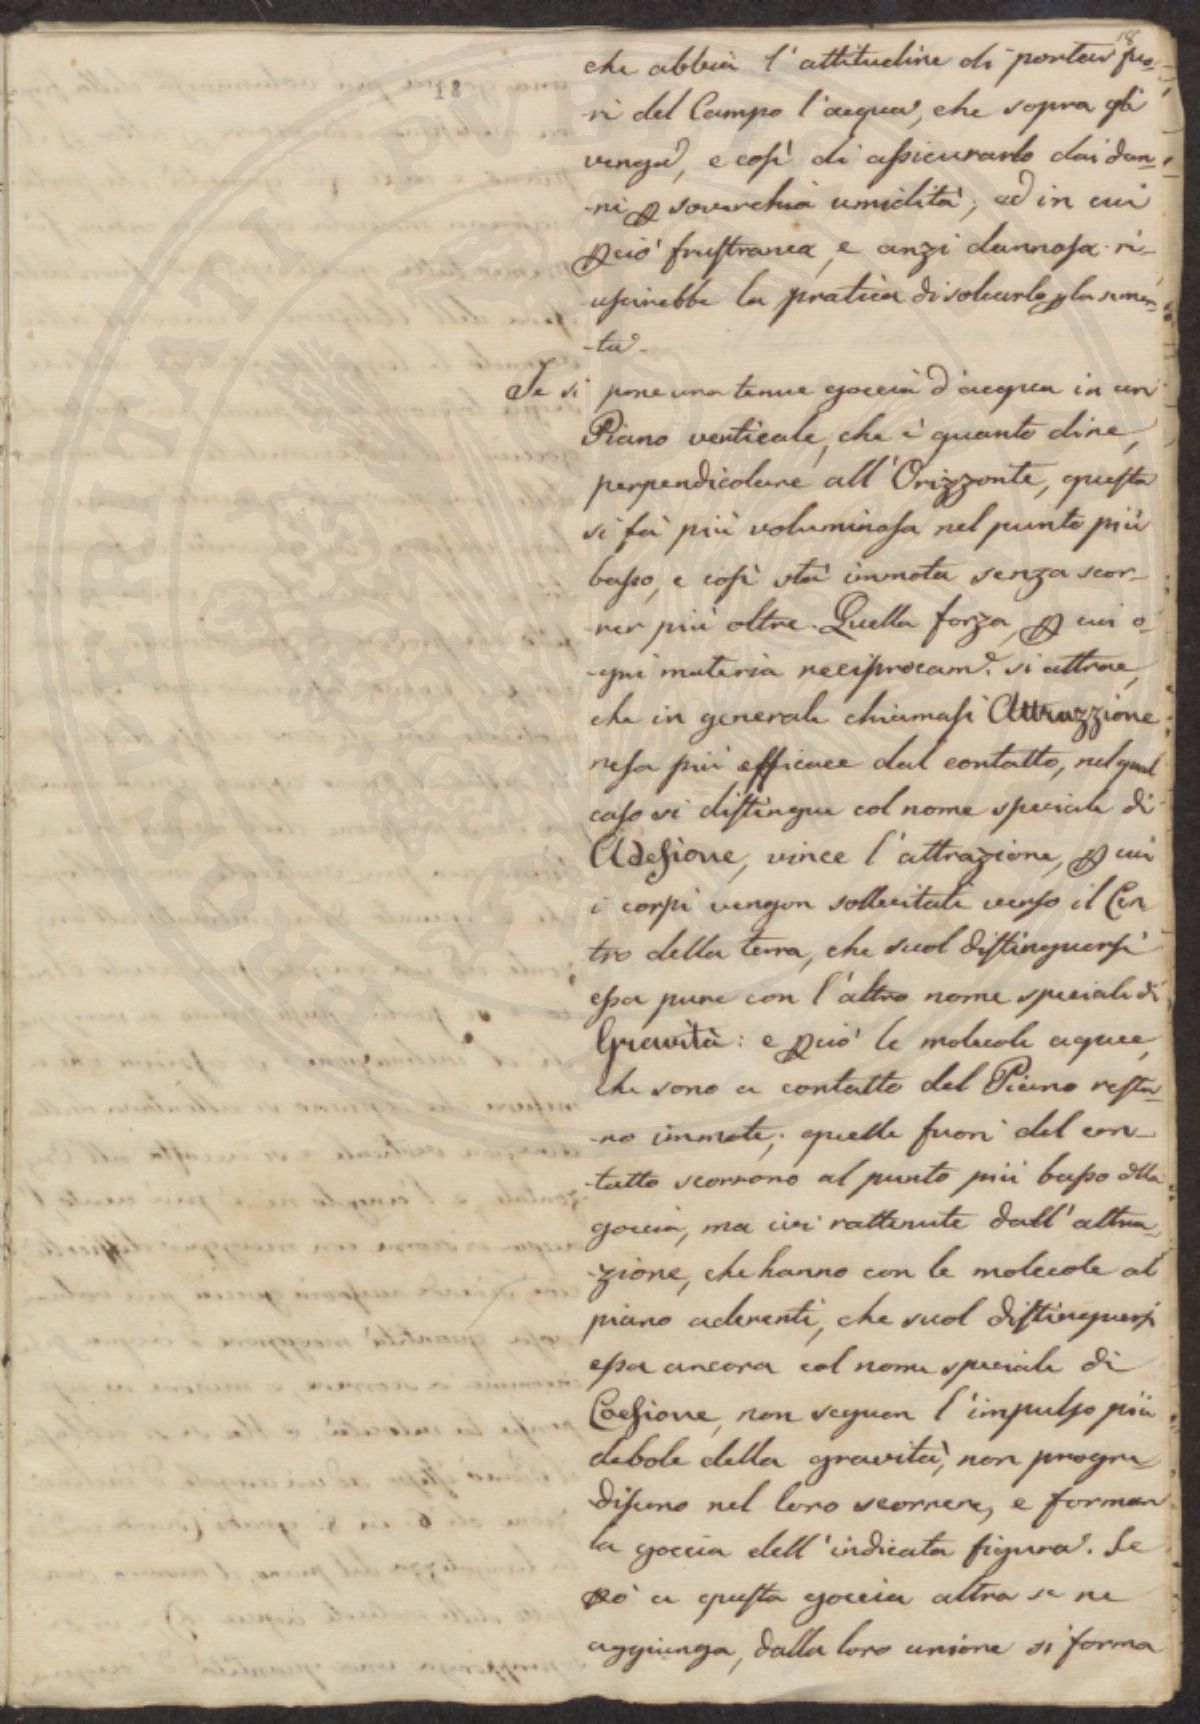 18
18
che abbia l'attitudine di portar fuo-
-ri del Campo l'acqua, che sopra gli
venga, e così di assicurarlo dai dan-
-ni p soverchia umidità; ed in cui
pciò frustranea, e anzi dannosa ri-
uscirebbe la pratica di solcarlo p la semen-
-ta.
Se si pone una tenue goccia d'acqua in un
Piano verticale, che è quanto dire,
perpendicolare all'Orizzonte, questa
si fà più voluminosa nel punto più
basso, e così stà immota senza scor-
-rer più oltre. Quella forza, p cui o-
-gni materia reciprocam.e si attrae,
che in generale chiamasi Attrazzione
resa più efficace dal contatto, nel qual
caso si distingue col nome speciale di
Adesione, vince l'attrazione, p cui
i corpi vengon sollecitati verso il Cen
tro della terra, che suol distinguersi
essa pure con l'altro nome speciale di
Gravità: e pciò le molecole aquee,
che sono a contatto del Piano resta-
-no immote; quelle fuori del con-
-tatto scorrono al punto più basso dlla
goccia, ma ivi rattenute dall'attra-
-zione, che hanno con le molecole al
piano aderenti, che suol distinguersi
essa ancora col nome speciale di
Coesione, non seguon l'impulso più
debole della gravità, non progre-
discono nel loro scorrere, e forman
la goccia dell'indicata figura. Se
pò a questa goccia altra se ne
aggiunga, dalla loro unione si forma